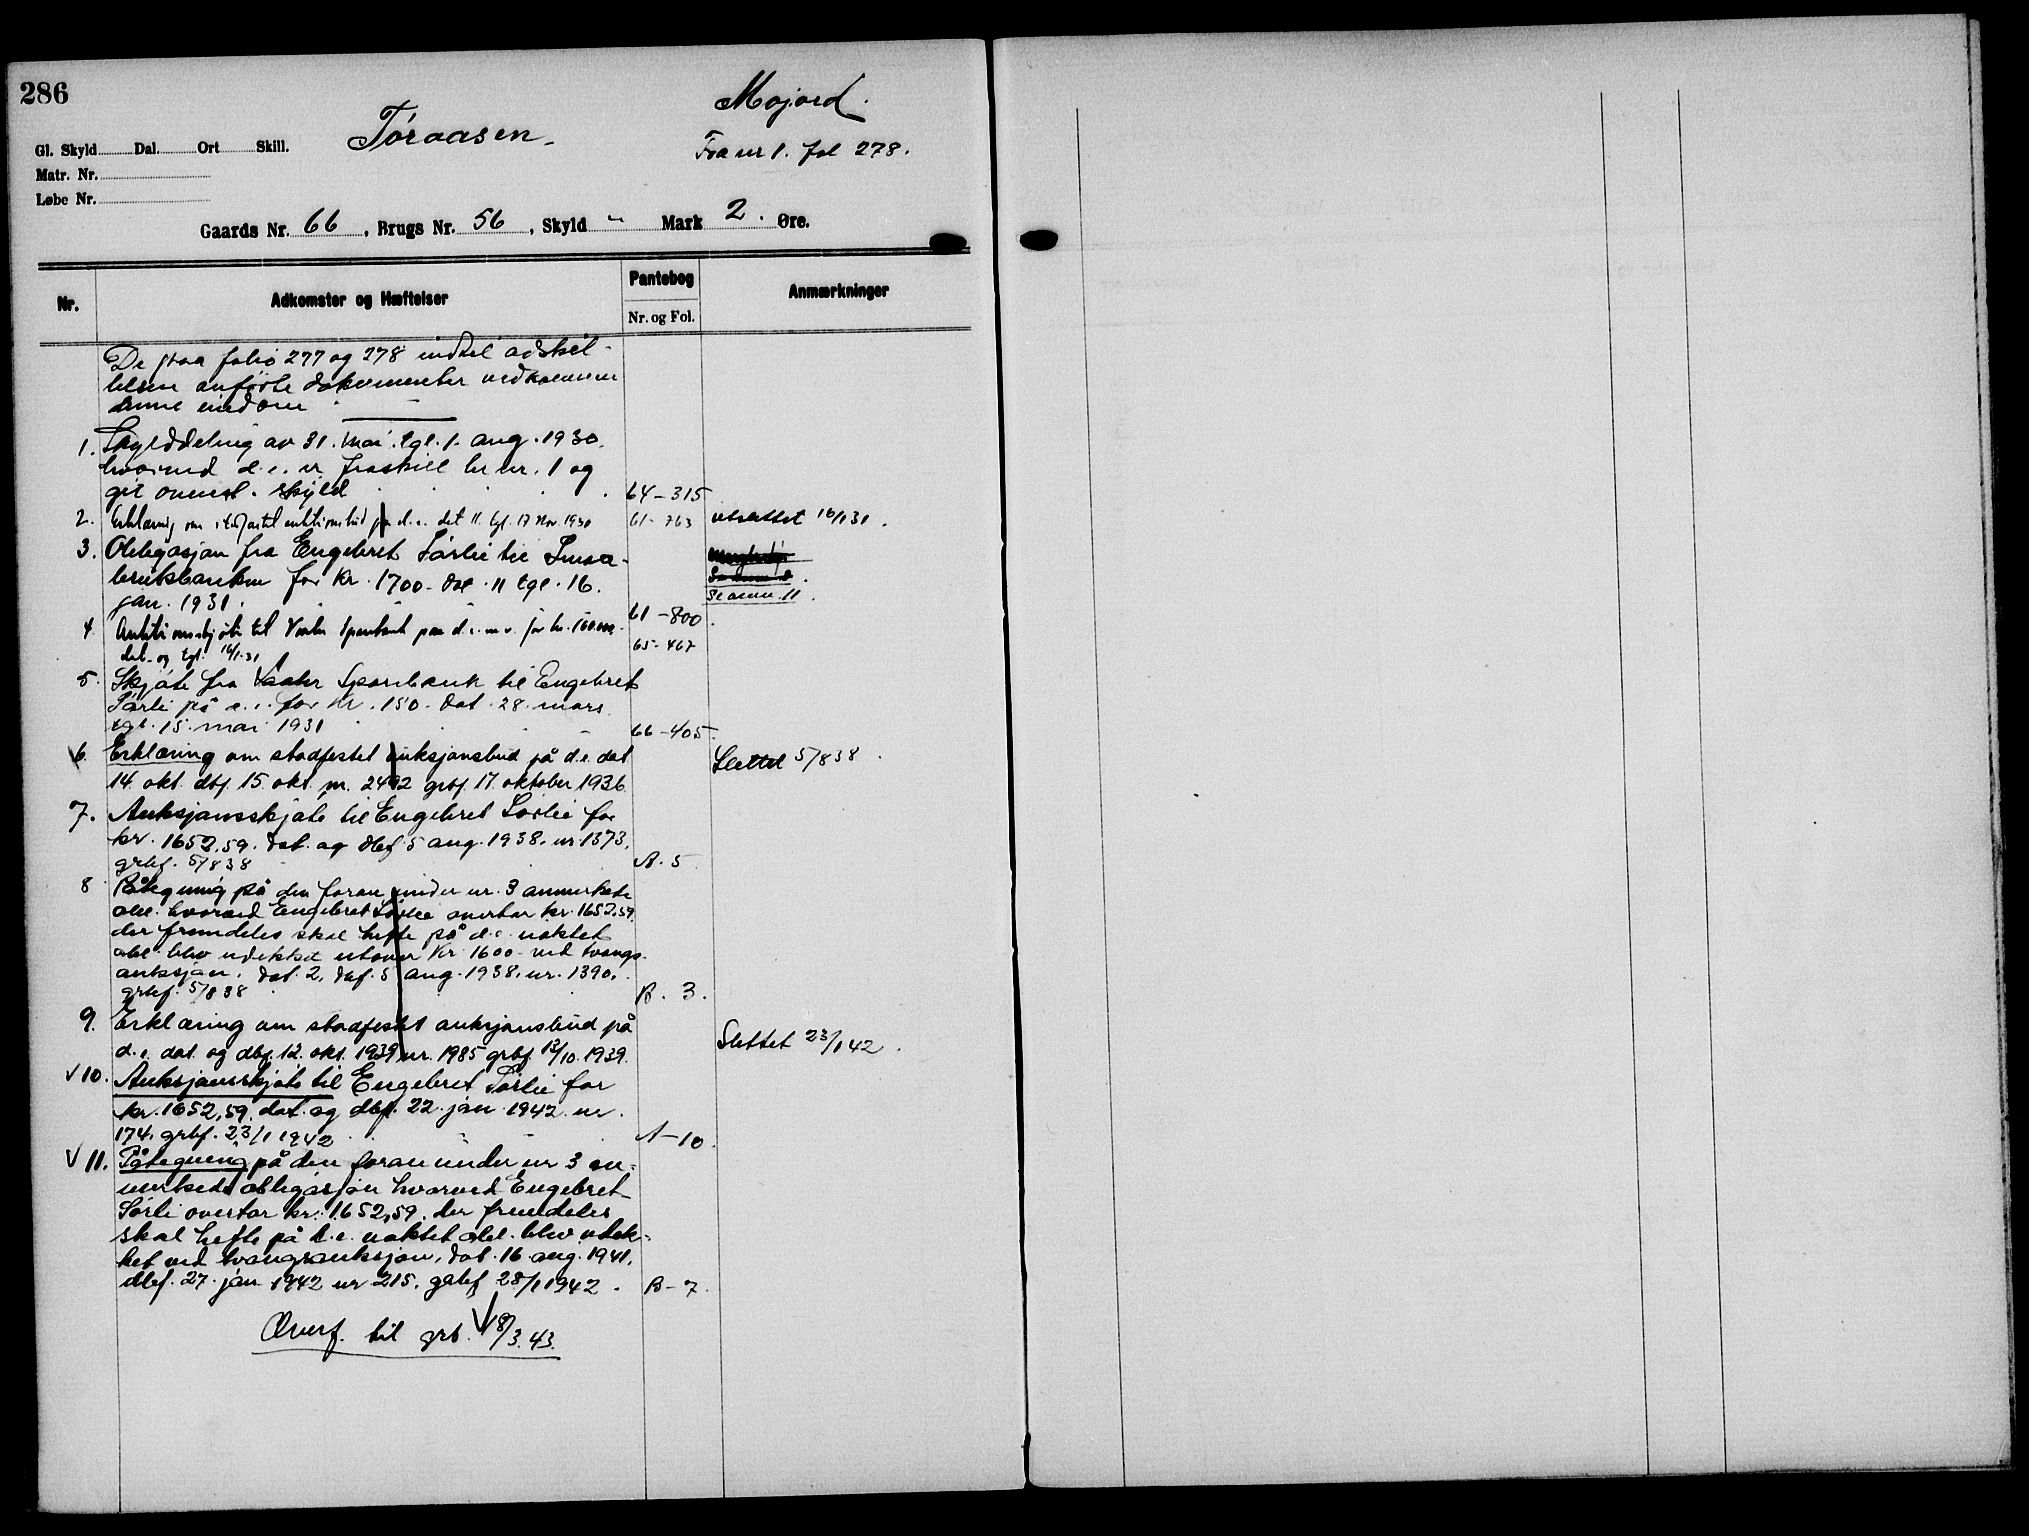 286
Mojord.
Töraasen.
Gl. Skyld Dal. Ort Skill.
Fra nr 1. fol 278.
Matr. Nr.
Løbe Nr.
Gaards Nr. 66, Brugs Nr. 56, Skyld " Mark 2. Øre.
Nr. Adkomster og Hæftelser Pantebog Nr. og Fol. Anmærkninger
De paa folio 277 og 278 indtil adskil-
lelsen anførte dokumenter vedkommer
denne eiendom.
1. Skylddeling av 31. mai. tgl. 1. aug. 1930.
hvorved d.e. er fraskilt br nr. 1 og
git ovenst. skyld 64-315
2. Erklæring om stadfæstet auktionsbud paa d.e. dat 11. tgl. 17 Nov. 1930 61-763 utslettet 16/1 31.
3. Obligasjon fra Engebret Sørlie til Smaa-
brukbanken for kr. 1700.- dat. 11 tgl. 16. Se anm. 11.
jan. 1931. 61-800.
4. Auktionsskjøte til Vaaler Sparebank paa d.e. m.v. for kr.
dat. og tgl. 16/1-31 65-467
5. Skjøte fra Vaaler Sparebank til Engebret
Sørli på d.e. for kr. 150.- dat. 28. mars
tgl. 15. mai 1931 66-405.
6. Erklæring om stadfestet auksjonsbud på d.e. dat
14. okt. dbf. 15. okt. nr. 2492 grbf. 17. oktober 1936. Slettet 5/8 38.
7. Auksjonsskjøte til Engebret Sørlie for
kr. 1652,59. dat. og dbf. 5 aug. 1938. nr. 1373.
grbf. 5/8 38 A. 5.
8 Påtegning på den foran under nr. 3 anmerkede
obl. hvorved Engebret Sørlie overtar kr. 1652,59.
der fremdeles skal hefte på d.e. uaktet
obl. blev udekket utover kr. 1600.- ved tvangs-
auksjon. dat. 2. dbf. 5 aug. 1938. nr. 1390.
grbf. 5/8 38 B. 3.
9. Erklæring om stadfestet auksjonsbud på
d.e. dat. og dbf. 12. okt. 1939 nr. 1985 grbf. 13/10. 1939. Slettet 23/1 42.
√ 10. Auksjonsskjøte til Engebret Sørlie for
kr. 1652,59. dat. og dbf. 22. jan. 1942. nr.
174. grbf. 23/1 1942 A-10.
√ 11. Påtegning på den foran under nr 3 an-
merkede obligasjon hvorved Engebret
Sørli overtar kr. 1652,59. der fremdeles
skal hefte på d.e. uaktet obl. blev udek-
ket ved tvangsauksjon. dat. 16. aug. 1941.
dbf. 27. jan 1942 nr 215. grbf 28/1 1942. B-7.
Overf. til grb. V 8/3.43.